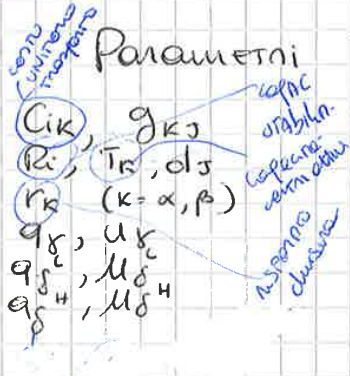 costo
unitario
trasporto
Parametri
Cik, gkj
Ri, Tk, dj
rk (k = α, β)
qγ, uγ
qδᴸ, Mδᴸ
qδᴴ, Mδᴴ
capac
stabilim.
capacità
centri attivi
risparmio
chiusura